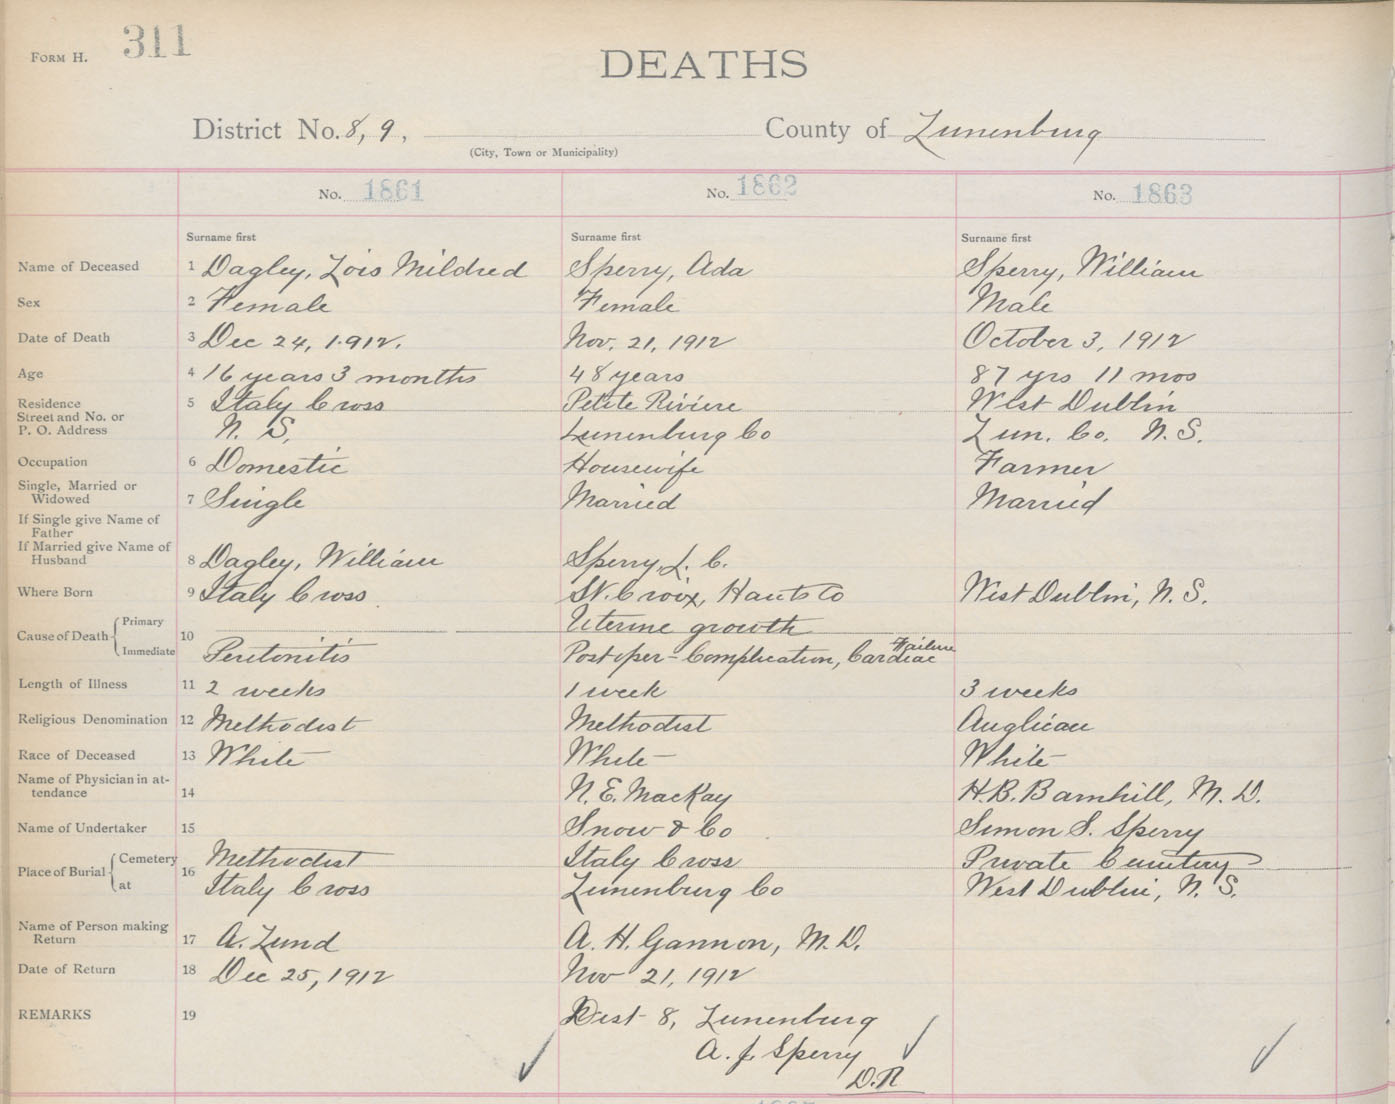 FORM H. 311
DEATHS
District No. 8, 9, County of Lunenburg
(City, Town or Municipality)
No. 1861 No. 1862 No. 1863
Surname first Surname first Surname first
Name of Deceased 1 Dagley, Lois Mildred Sperry, Ada Sperry, William
Sex 2 Female Female Male
Date of Death 3 Dec 24, 1912. Nov. 21, 1912 October 3, 1912
Age 4 16 years 3 months 48 years 87 yrs 11 mos
Residence 5 Italy Cross Petite Riviere West Dublin
Street and No. or
P. O. Address N. S. Lunenburg Co Lun. Co. N. S.
Occupation 6 Domestic Housewife Farmer
Single, Married or
Widowed 7 Single Married Married
If Single give Name of
Father
If Married give Name of
Husband 8 Dagley, William Sperry, L. C.
Where Born 9 Italy Cross St. Croix, Hants Co West Dublin, N. S.
Cause of Death Primary 10 Uterine growth
Immediate Peritonitis Postoper- Complication, Cardiac Failure
Length of Illness 11 2 weeks 1 week 3 weeks
Religious Denomination 12 Methodist Methodist Anglican
Race of Deceased 13 White White White
Name of Physician in at-
tendance 14 N. E. MacKay H. B. Barnhill, M. D.
Name of Undertaker 15 Snow & Co Simon S. Sperry
Place of Burial Cemetery 16 Methodist Italy Cross Private Cemetery
at Italy Cross Lunenburg Co West Dublin, N. S.
Name of Person making
Return 17 A. Lund A. H. Gannon, M. D.
Date of Return 18 Dec 25, 1912 Nov 21, 1912
REMARKS 19 Dist 8, Lunenburg
A. J. Sperry
D. R